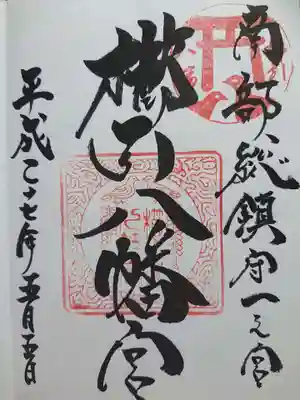 南部総鎮守一之宮
櫛引八幡宮
平成二十七年五月五日